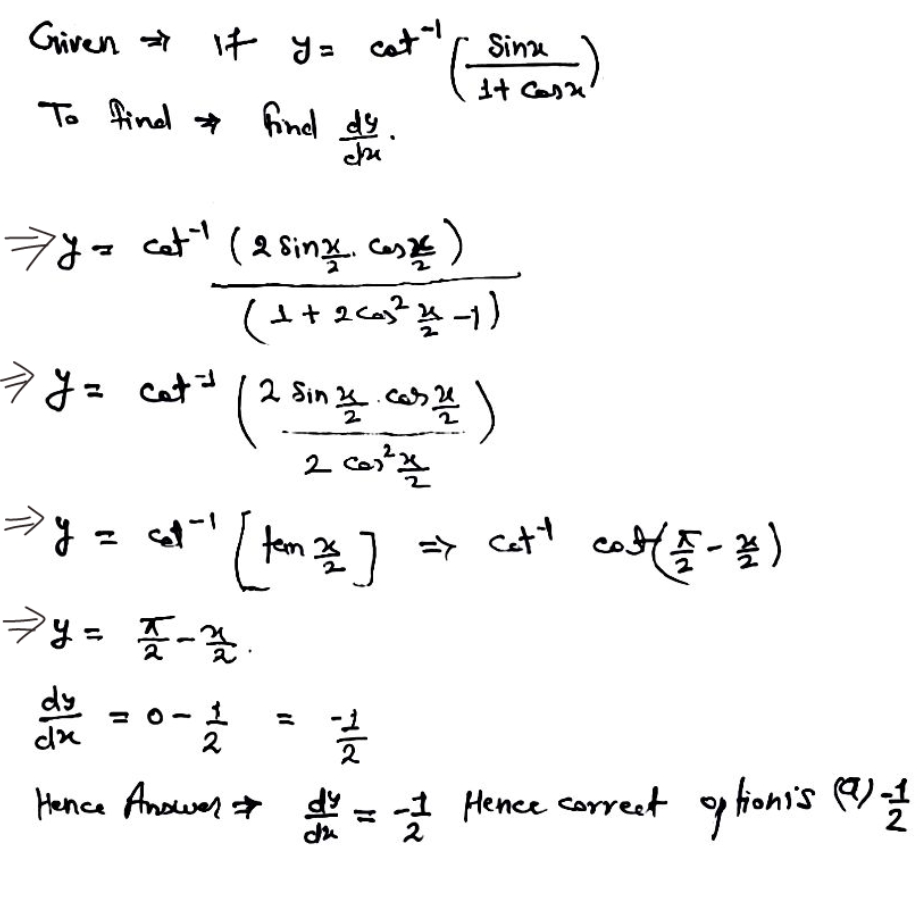 Given ⇒ If y = cot⁻¹ (sinx / 1 + cosx)
To find → find dy/dx.
⇒ y = cot⁻¹ (2 sin x/2 . cos x/2) / (1 + 2 cos² x/2 - 1)
⇒ y = cot⁻¹ (2 sin x/2 . cos x/2 / 2 cos² x/2)
⇒ y = cot⁻¹ [tan x/2] ⇒ cot⁻¹ cot(π/2 - x/2)
⇒ y = π/2 - x/2.
dy/dx = 0 - 1/2 = -1/2
Hence Answer ⇒ dy/dx = -1/2 Hence correct option is (a) -1/2